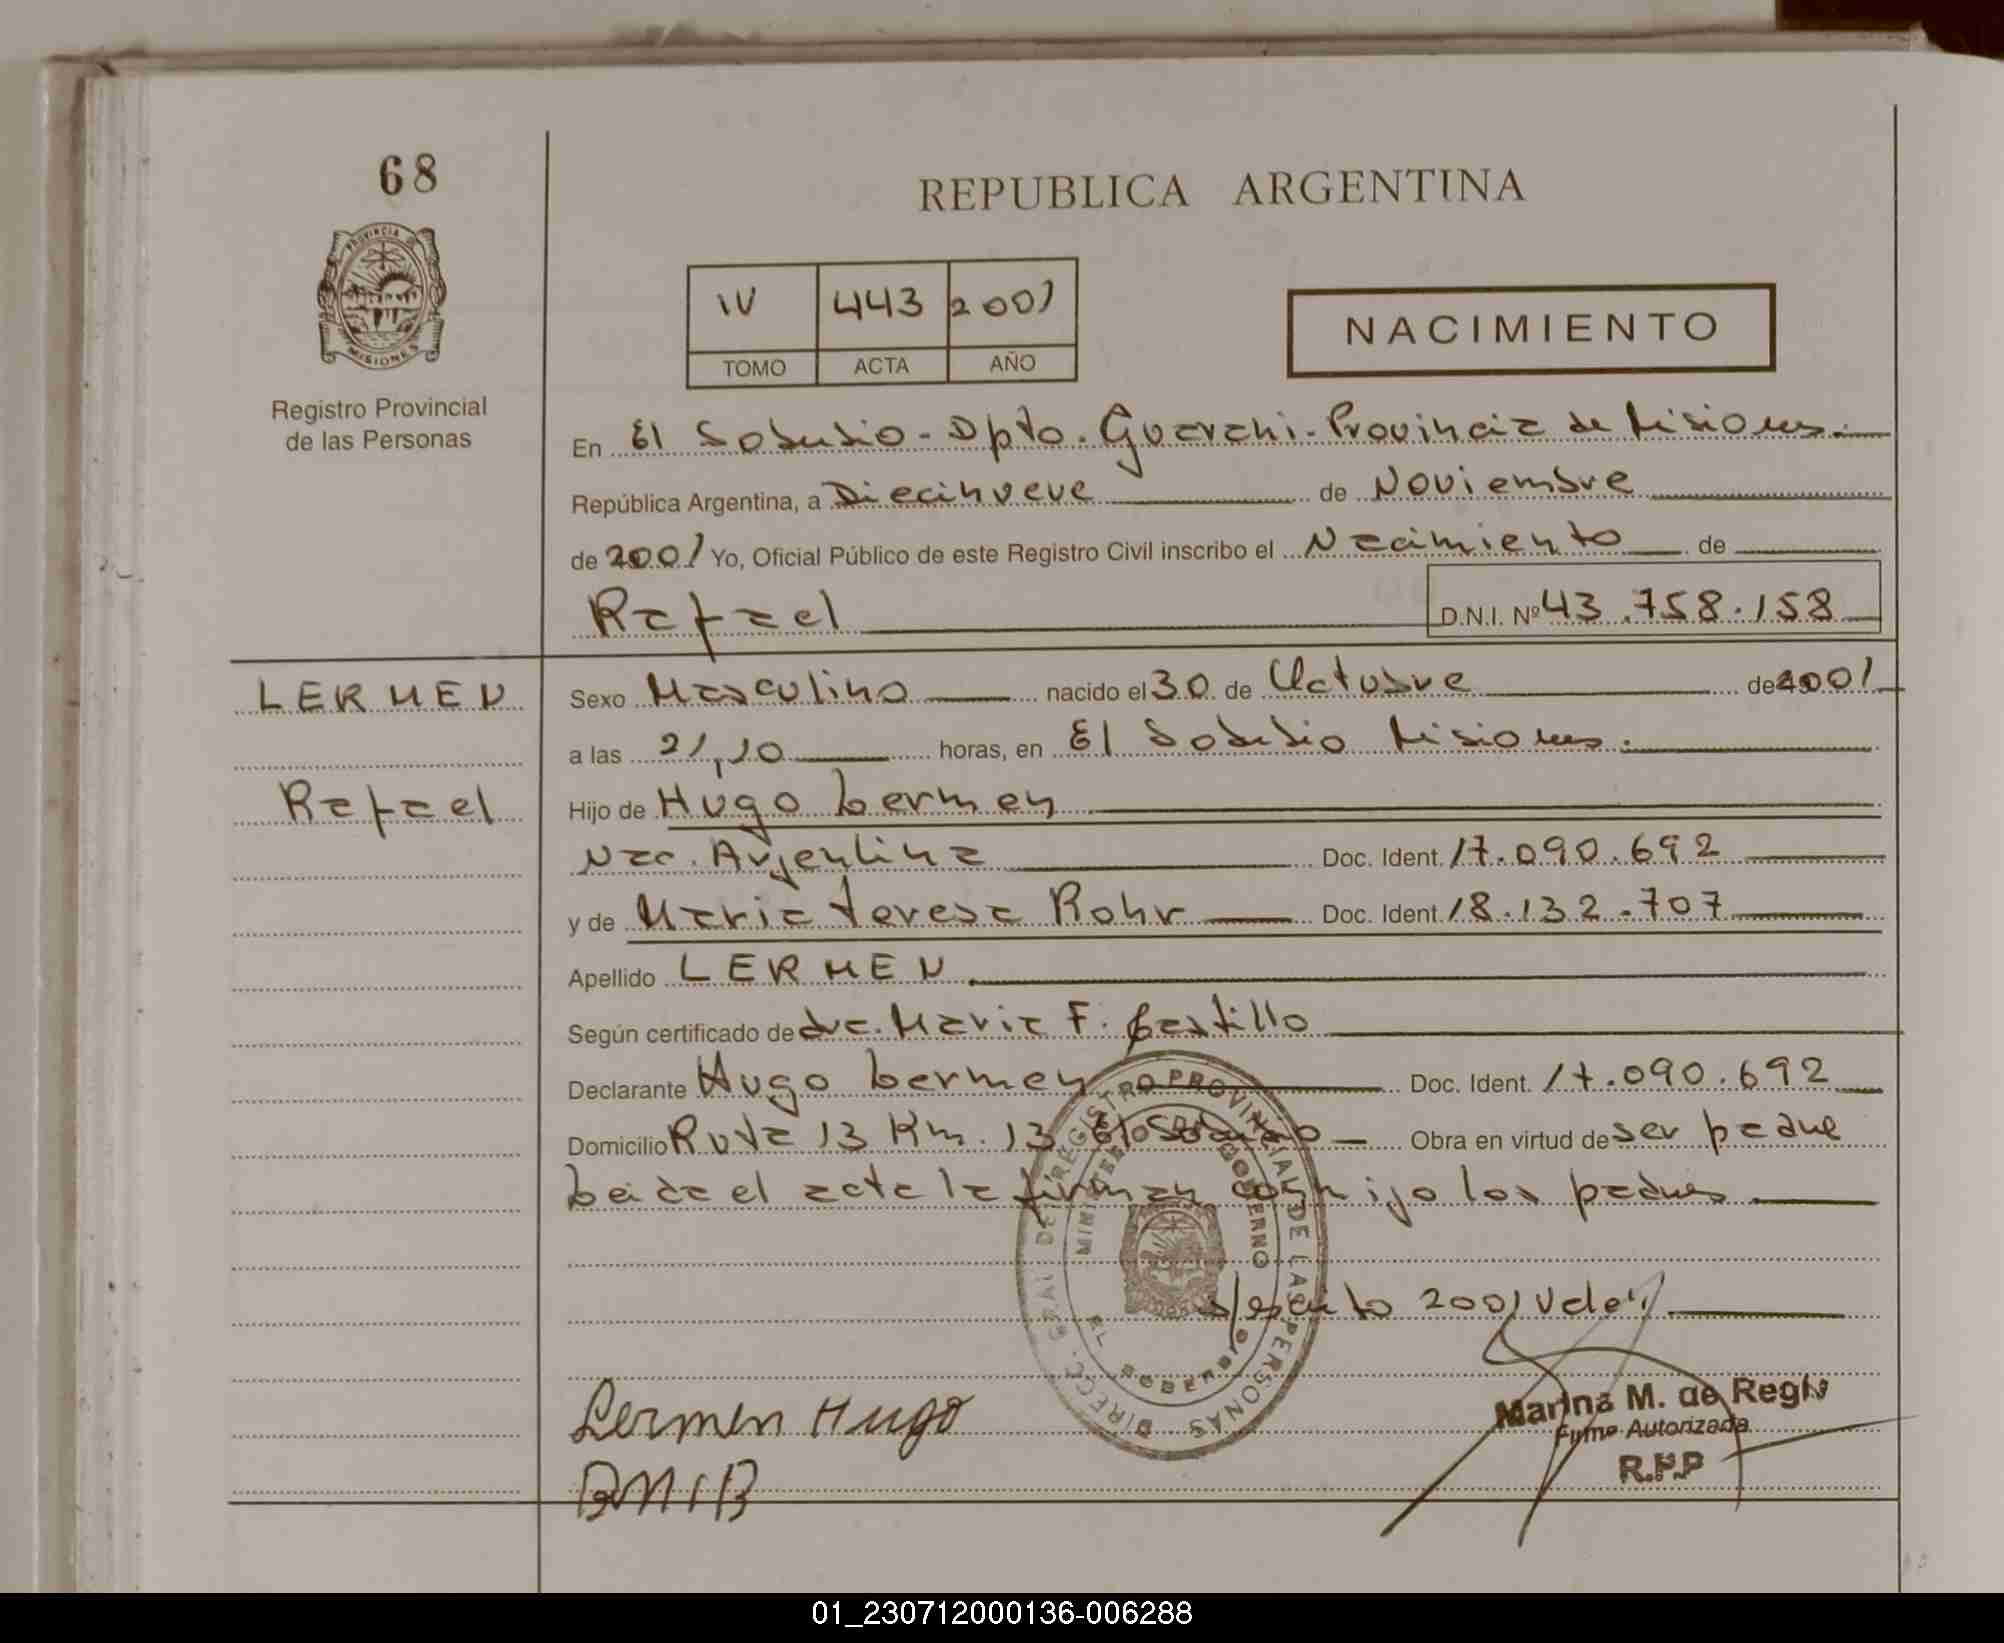 68
REPUBLICA ARGENTINA
PROVINCIA DE
MISIONES
IV 443 2001
TOMO ACTA AÑO
NACIMIENTO
Registro Provincial
de las Personas
En El Soberbio - Dpto. Guarani - Provincia de Misiones.
República Argentina, a Diecinueve de Noviembre
de 2001 Yo, Oficial Público de este Registro Civil inscribo el Nacimiento de
Rafael D.N.I. Nº 43.758.158
LERMEN Sexo Masculino nacido el 30 de Octubre de 2001
a las 21,10 horas, en El Soberbio Misiones.
Rafael Hijo de Hugo Lermen
Nac. Argentina Doc. Ident. 17.090.692
y de Maria teresa Rohr Doc. Ident. 18.132.707
Apellido LERMEN
Según certificado de dra. Maria F. Castillo
Declarante Hugo Lermen Doc. Ident. 17.090.692
Domicilio Ruta 13 Km. 13 El Soberbio Obra en virtud de ser padre
Leida el acta la firman conmijo los padres
s/escrito 2001 Vale
DIRECC. GRAL. DEL REGISTRO PROVINCIAL DE LAS PERSONAS
MINISTERIO DE GOBIERNO
EL SOBERBIO
Lermen Hugo
Marina M. de Regis
Firma Autorizada
R.P.P
01_230712000136-006288